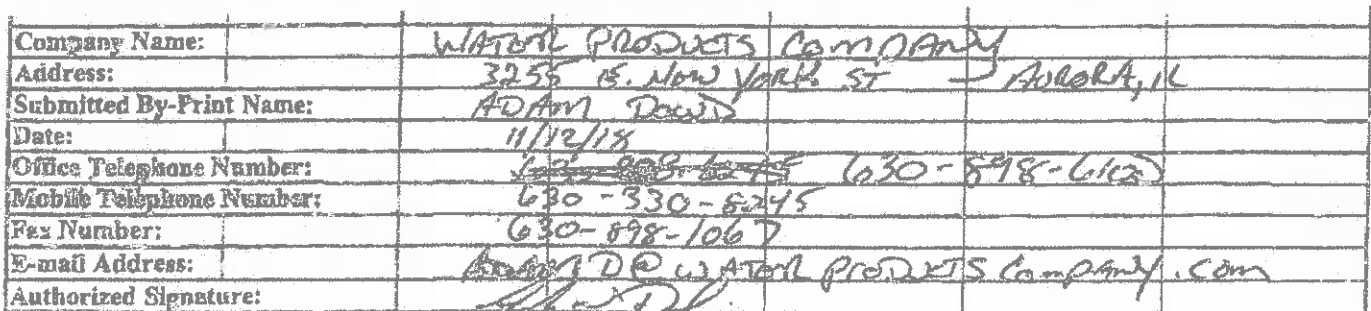 Company Name: WATER PRODUCTS COMPANY
Address: 3255 E. NEW YORK ST - AURORA, IL
Submitted By-Print Name: ADAM DOWD
Date: 11/12/18
Office Telephone Number: 630-898-6100
Mobile Telephone Number: 630-330-8245
Fax Number: 630-898-1067
E-mail Address: ADAMD@WATERPRODUCTSCOMPANY.COM
Authorized Signature: